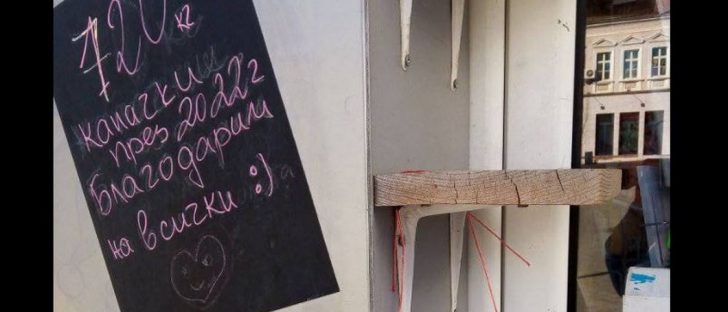 720 кг
капачки
през 2022г
Благодарим
на всички :)